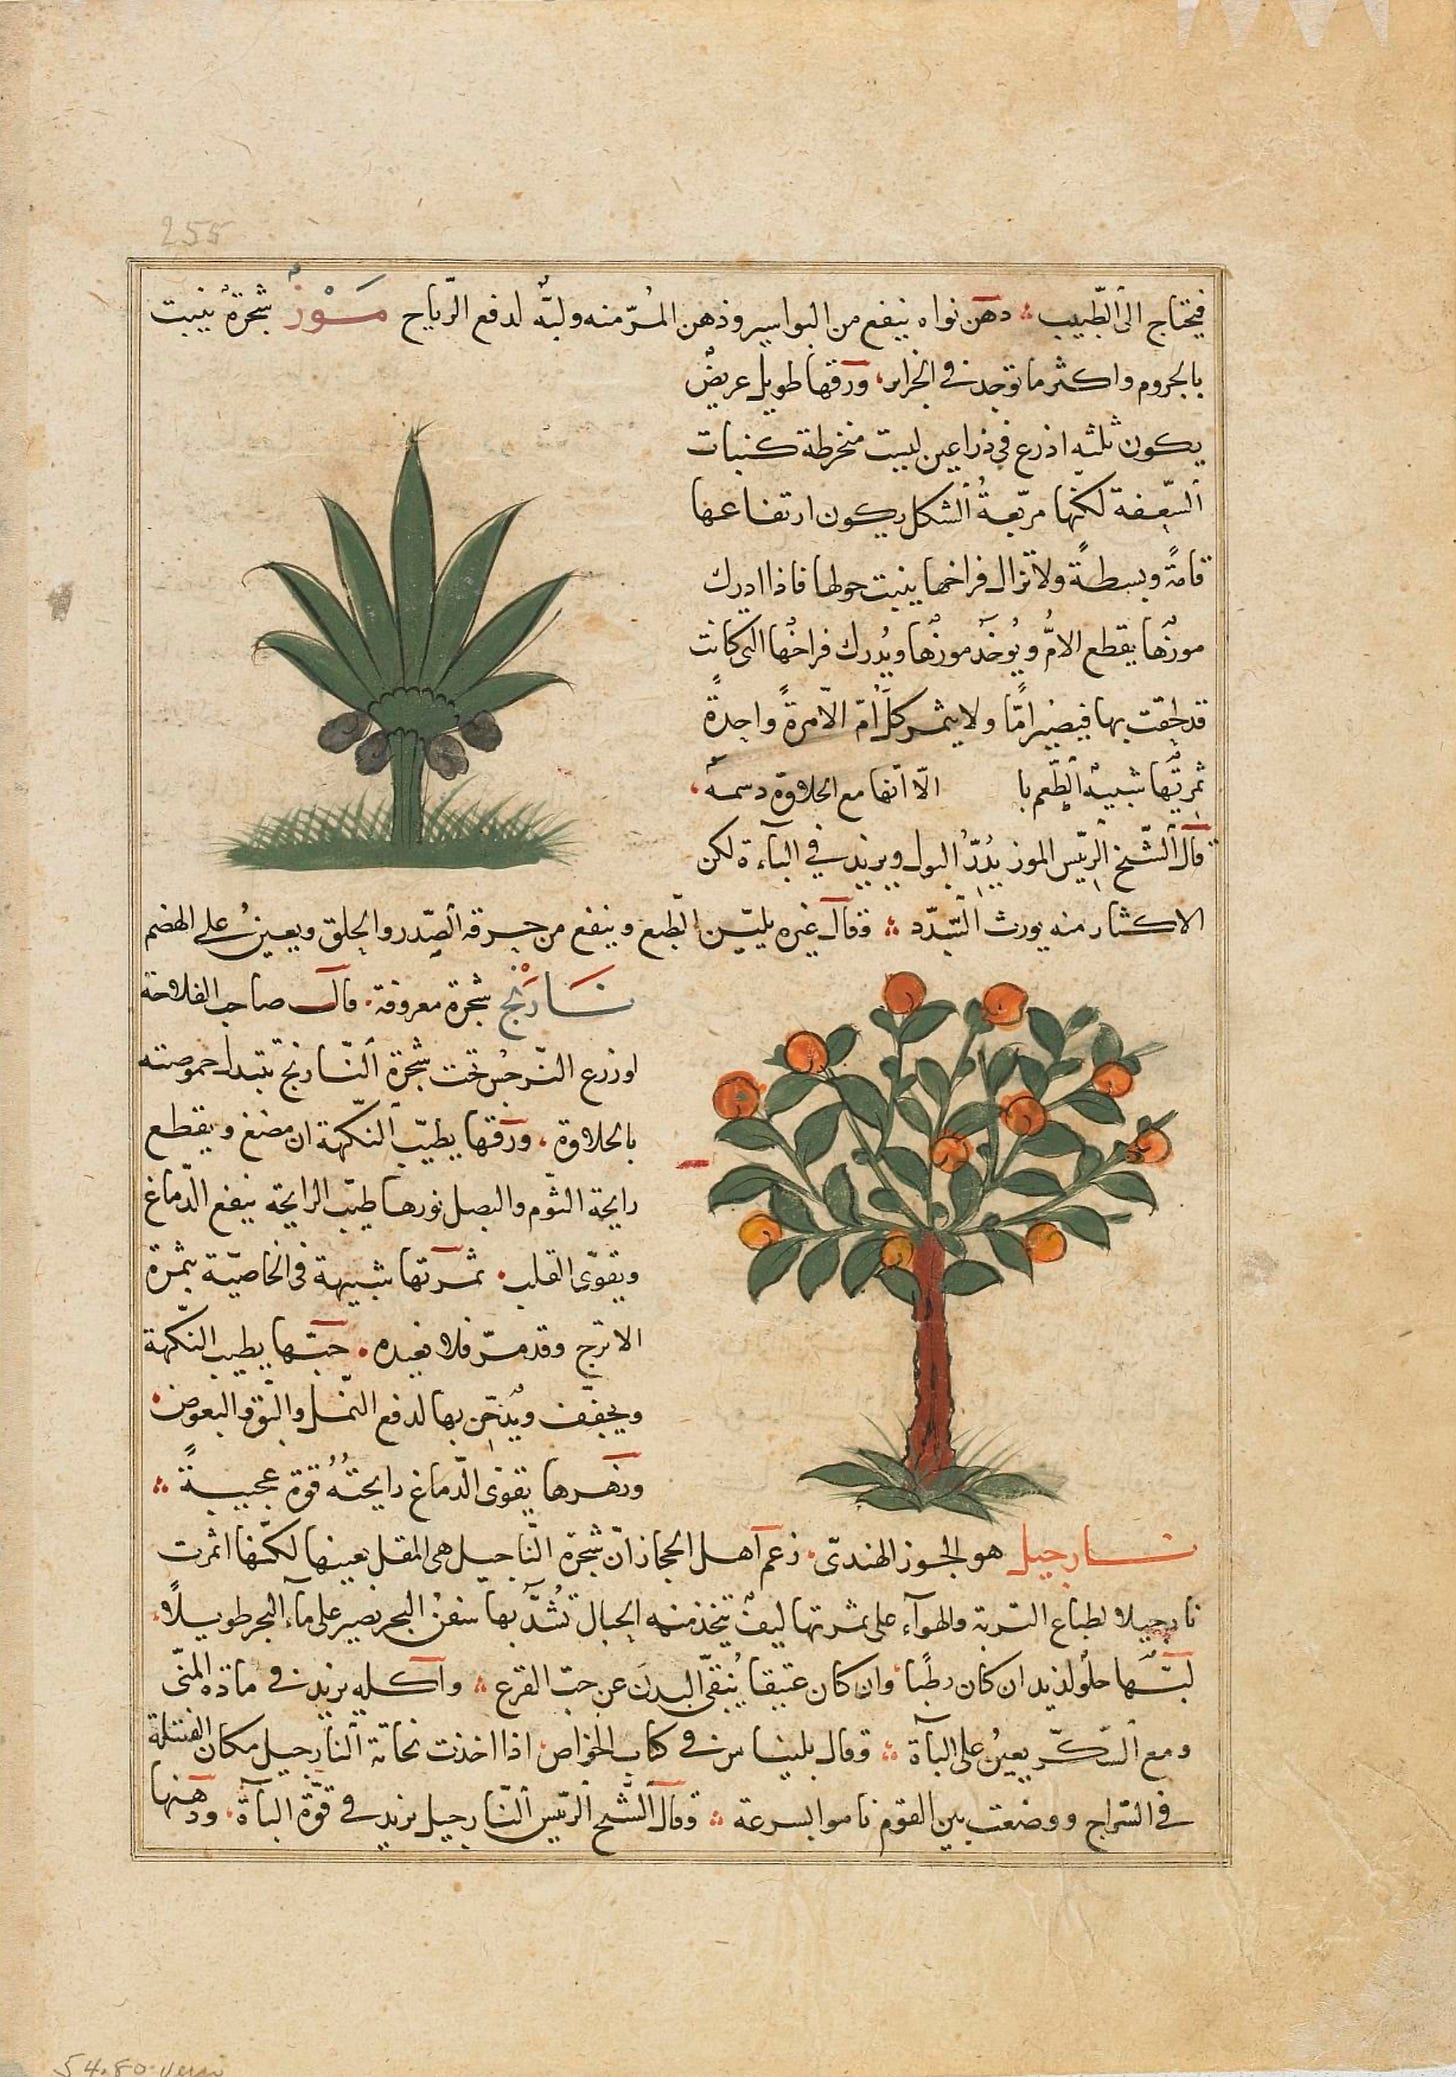 255
فيحتاج الى الطّبيب دهن نواه ينفع من البواسير ودهن المُرّ منه ولبّه لدفع الرّياح مَوْزٌ شجرةٌ ينبت
بالجروم واكثر ما توجد فى الجزاير ورقها طويل عريضٌ
يكون ثلثه اذرع فى ذراعين ليست منخرطة كنبات
السّعفة لكنّها مربّعةُ الشكل يكون ارتفاعها
قامةً وبسطةً ولا تزال فراخها ينبت حولها فاذا ادرك
موزُها يقطع الامُّ ويُوخَذ موزُها ويُدرك فراخُها التى كانت
قد لحقت بها فيصيرُ امًّا ولا يثمر كلّ اُمّ الّا مرةً واحدةً
ثمرتُها شبيهُ الطّعم با الّا انّها مع الحلاوة دسمةٌ
قال الشّيخ الرئيس الموز يُدِرّ البول ويزيد فى الباءة لكن
الاكثار منه يورث السّدد وقال غيره يليّن الطّبع وينفع من حرقة الصّدر والحلق ويعينُ على الهضم
نَارَنْج شجرة معروفة قال صاحب الفلاحة
اوزرع النّرجس تحت شجرة النّارنج تتبدل حموضته
بالحلاوة ورقها يطيّب النكهة ان مضغ ويقطع
رايحة الثّوم والبصل نورها طيّب الرايحة ينفع الدّماغ
ويقوّى القلب ثمرتها شبيهة فى الخاصيّة بثمرة
الاترج وقد مرّ فلا نعيده حبّها يطيب النكهة
ويجفّف ويُدخّن بها لدفع النّمل والبّق والبعوض
وزهرها يقوى الدّماغ رايحتهُ قوة عجيبةً
نارجيل هو الجوز الهندىّ زعم اهل الحجاز انّ شجرة النّارجيل هى المقل بعينها لكنّها اثمرت
نارجيلا لطباع التربة والهوآء على ثمرتها ليفٌ يتّخذ منه الحبال تُشدّ بها سفنُ البحر يصبر على مآء البحر طويلاً
لبّها حلو لذيذ ان كان رطبًا وان كان عتيقا يُنقّى البدنَ عن حبّ القرع وآكله يزيد فى مادة المنىّ
ومع السّكّر يعينُ على البآة وقال بليناس فى كتاب الخواص اذا اخذت نحاتة النارجيل مكان الفتيلة
فى السّراج ووضعت بين القوم ناموا بسرعة وقال الشّيخ الرئيس النّارجيل يزيد فى قوّة البآة ودهنها
54.80 verso